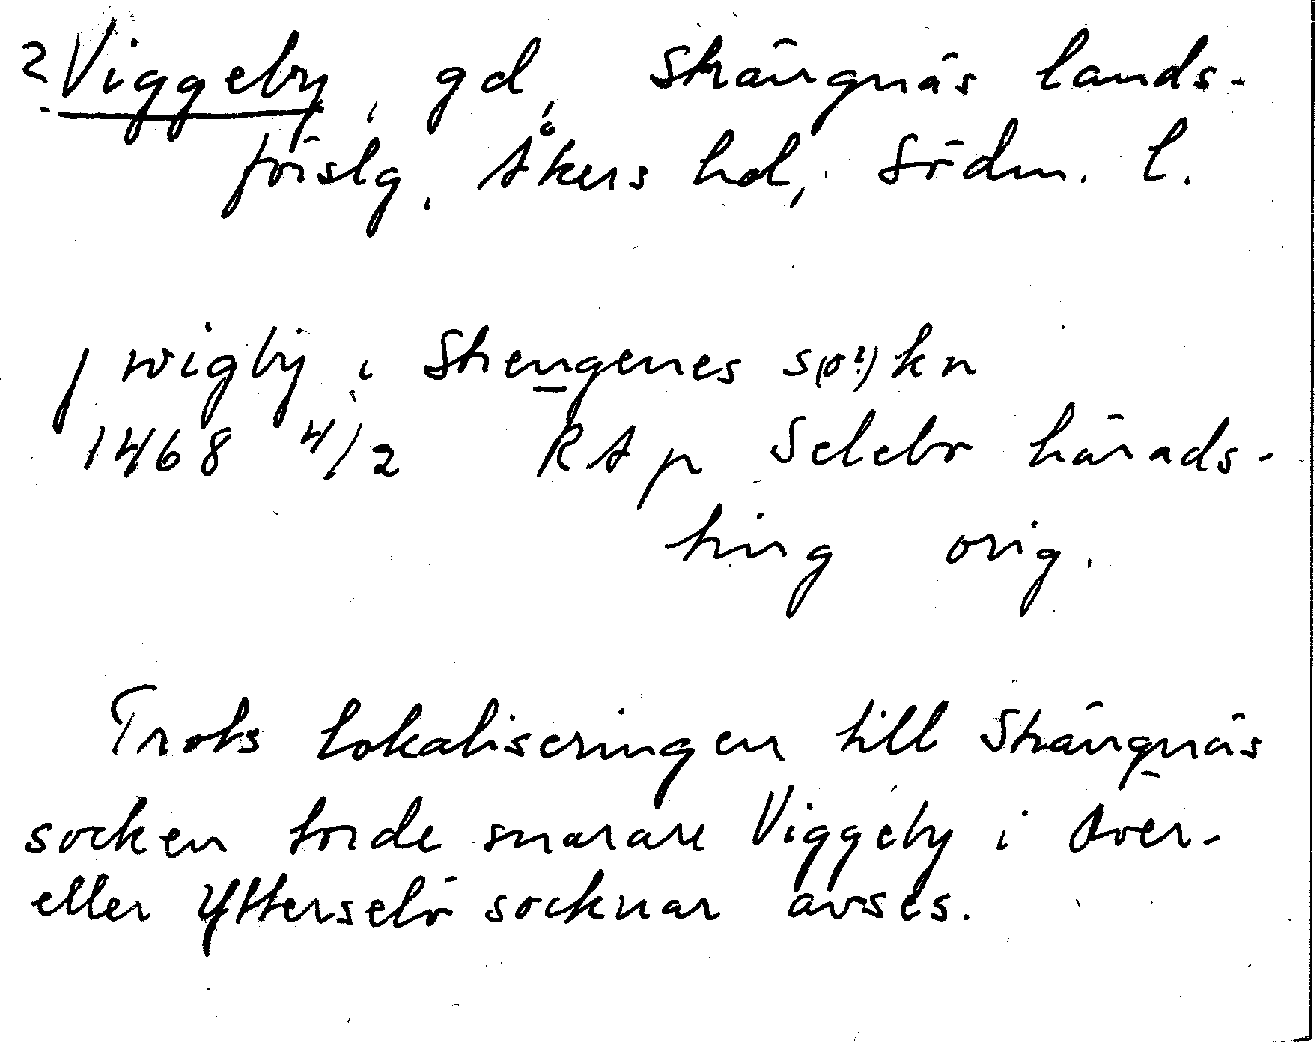 ? Viggeby, gd, Strängnäs lands-
förslg. Åkers hd, Södm. l.
j wigby i Strengenes s(o?)kn
1468 4/2 RAp Selebo härads-
ting orig.
Trots lokaliseringen till Strängnäs
socken torde snarare Viggeby i Över-
eller Ytterselö socknar avses.